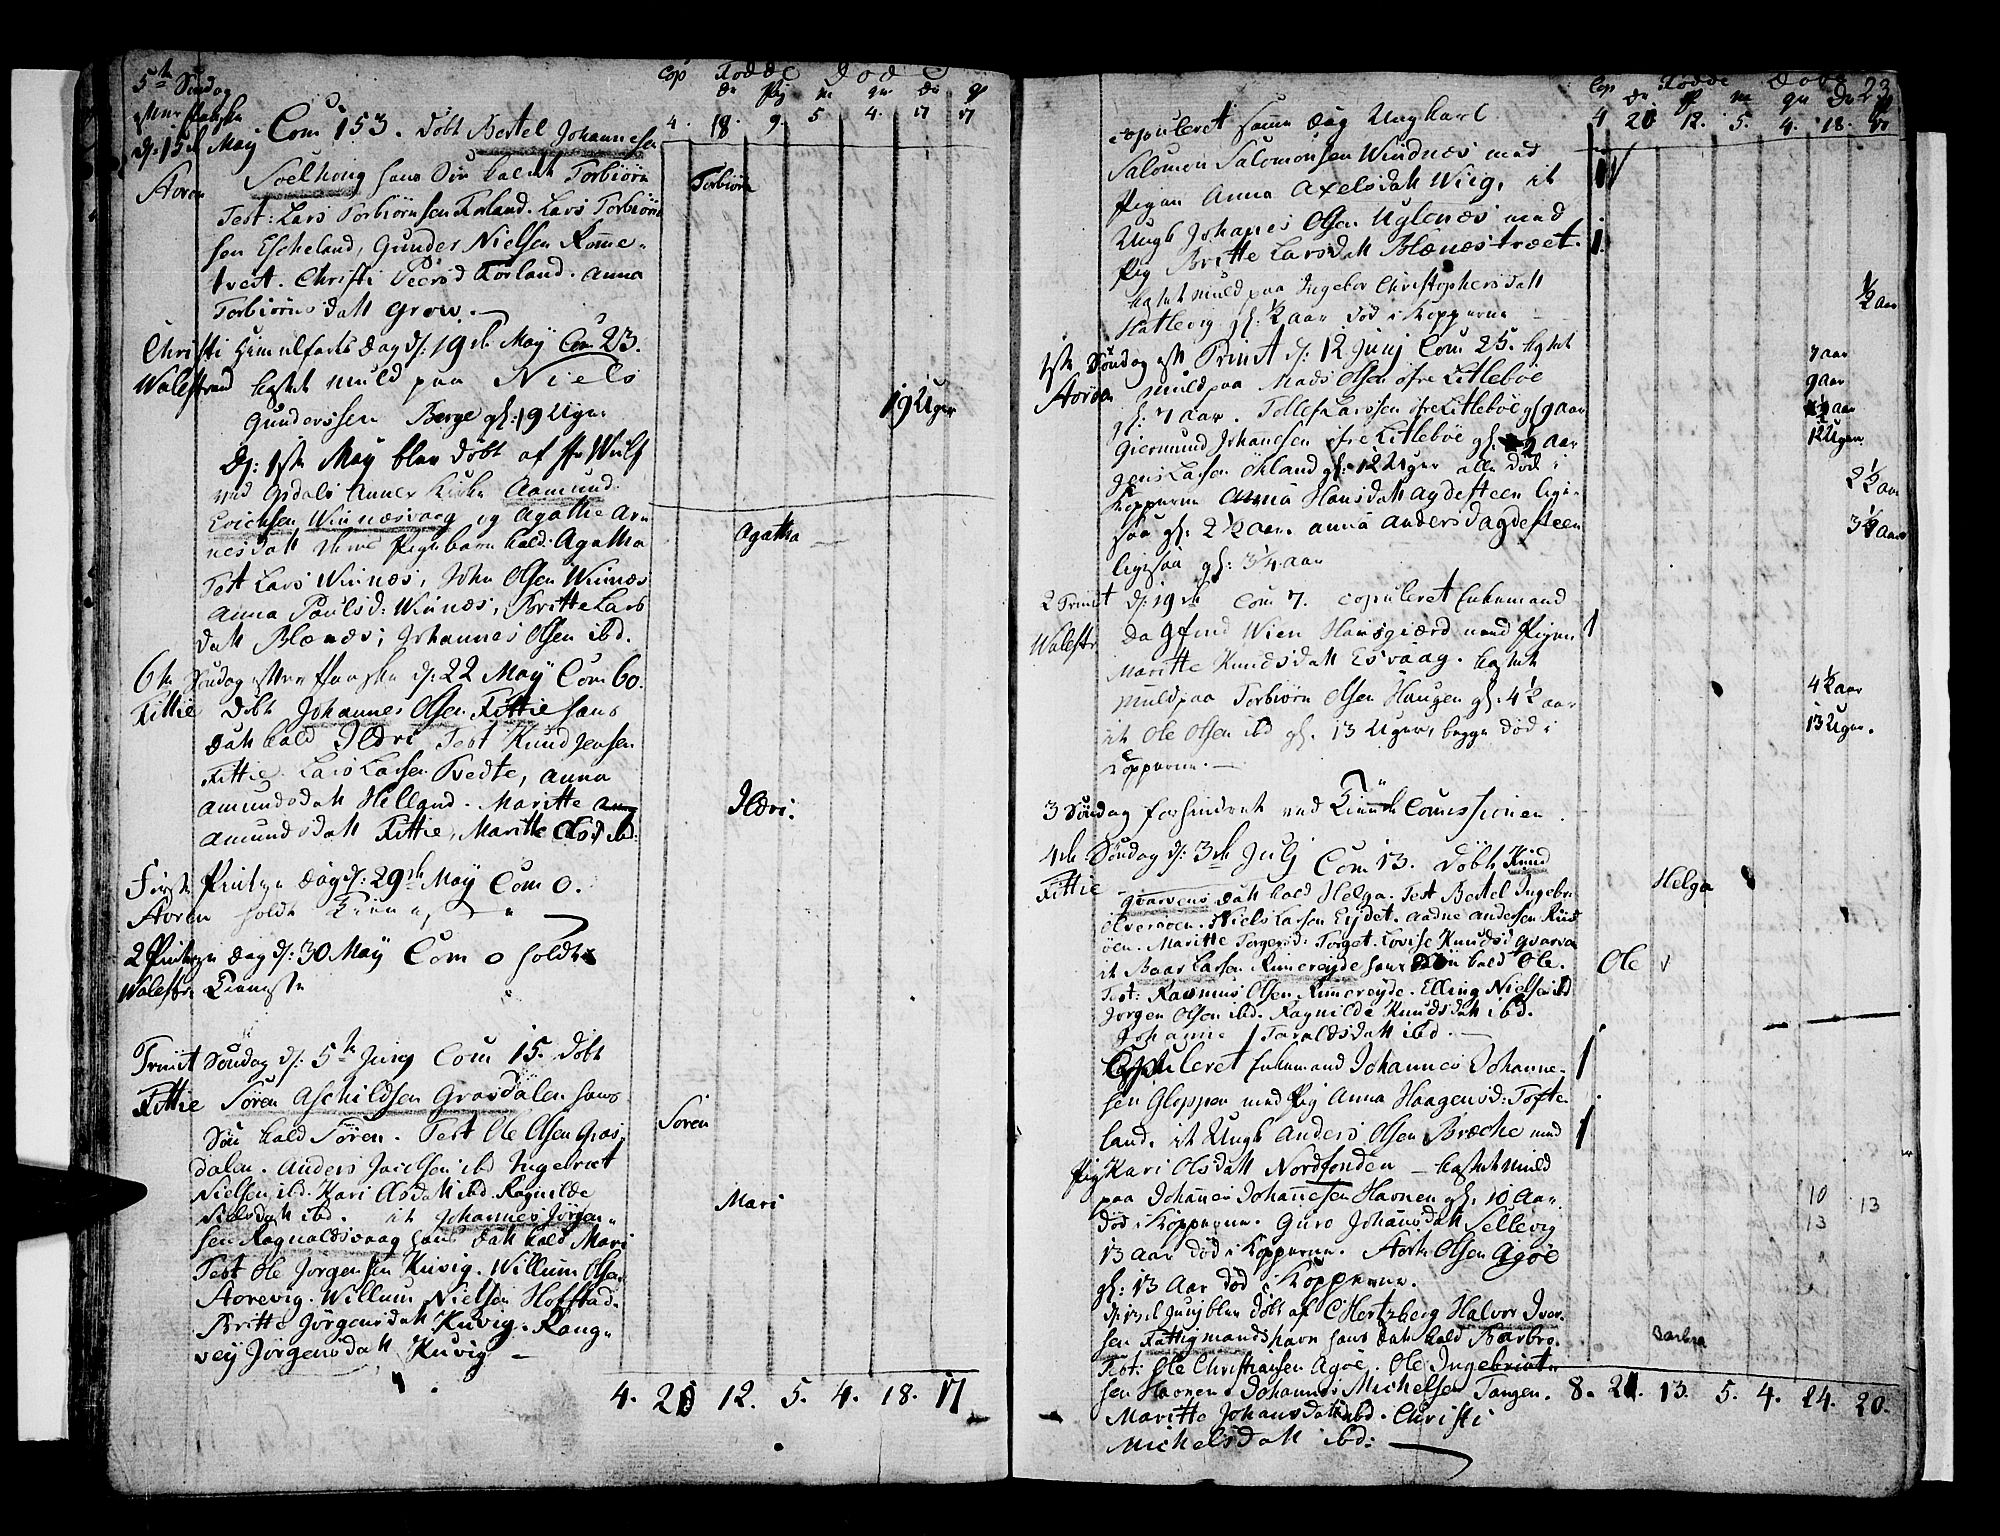 5te Søndag
efter Paaske
d: 15de May Com 153. døbt Bertel Johannessen
Storøen Soelhoug hans Søn kaldet Torbiørn
Test: Lars Torbiørnsen Forland. Lars Torbiørn
sen Escheland, Gunder Nielsen Komme-
tvest. Christi Peersd Forland. Anna
Torbiørnsdatt Grow.
Christi Himelfarts Dag d: 19de May Com 23.
Walestrand kastet muld paa Niels
Gunderssen Berge gl: 19 Uger
D: 1ste May blev døbt af Hr Wulf
ved Opdals Annex Kirke Aamund
Erichsen Winnæsvaag og Agathe Ar
nesdatt Pigebarn kald: Agatha
Test Lars Winnæs, John Olsen Winnæs
Anna Poulsd: Winnæs, Britte Lars
datt Blænæs, Johannes Olsen ibd.
6te Søndag efter Paaske d: 22 May Com 60.
Fittie døbt Johannes Olsen Fittie hans
datt kald Ildri Test Knud Jensen
Fittie. Lars Larsen Tvedte, Anna
Amundsdatt Helland. Maritte
Amundsdatt Fittie, Maritte Olsd ibd:
Første Pintze Dag d: 29de May Com 0.
Storøen holdt Tienneste
2 Pintze Dag d: 30 May Com 0 holdt
Walestr: Tienneste
Trinit Søndag d: 5te Junj Com 15. døbt
Fittie Søren Aschildsen Grøsdalen hans
Søn kald Søren. Test Ole Olsen Grøs
dalen. Anders Jacelsen ibd Ingebrict
Nielsen ibd. Kari Olsdatt ibd. Ragnilde
Nielsdatt ibd. it Johannes Jørgen-
sen Ragnaldsvaag hans datt kald Mari
Test Ole Jørgensen Kuvig. Willum Olsen
Storevig. Willum Nielsen Hofstad.
Britte Jørgensdatt Kuvig. Rang-
vey Jørgensdatt Kuvig
Cop Fødde Døde
dr Pig m qv dr p
4. 18. 9. 5 4. 17 17
Torbiørn
19 Uger
Agatha
Ildri.
Søren
Mari
4. 20 12. 5. 4. 18. 17
23
Cop Fødde Døde
dr p m qv dr p
4 20 12. 5. 4. 18. 17
copuleret samme dag Ungkarl
Salomon Salomonsen Windnæs med
Pigen Anna Axelsdatt Wiig, it
Ungk Johanes Olsen Uglenæs med
Pig Britte Larsdatt Blænæstræet.
kastet muld paa Ingebor Christophersdatt
Hatlevig gl: ½ aar død i Kopperne
1ste Søndag eft Trinit d: 12 Junj Com 25. kastet
Storøen muld paa Mads Olsen øfre Litleböe
gl: 7 aar. Tollef Larssen øfre Litleböe gl 9 aar
Giermund Johansen øfre Litleböe gl: 2 aar
Jens Larsen Økland gl: 12 Uger alle død i
Kopperne Anna Hansdatt Agdesteen lige-
saa gl: 2½ aar. Anna Andersd Agdesteen
ligesaa gl: 3¼ aar
2 Trinit d: 19de Com 7. copuleret Enkemand
Walestr Dagfind Wien Hansgierd med Pigen
Maritte Knudsdatt Esvaag. kastet
muld paa Torbiørn Olsen Haugen gl: 4½ aar
it Ole Olsen ibd gl. 13 Uger, begge død i
Kopperne.
3 Søndag forhindret ved Comissionen
4de Søndag d: 3de Julj Com 13. døbt Knud
Fittie Qvarvens datt kald Helga. Test Bertel Ingebr:
Olversøen. Niels Larsen Eydet. Aadne Andersen Rus
øen. Maritte Torgersd: Torget. Lovise Knudsd Qvarven
it Baar Larsen Rimereyde hans Søn kald Ole.
Test: Rasmus Olsen Rimereyde. Elling Nielsen ibd
Jørgen Olsen ibd. Ragnilde Knudsdatt ibd.
Johanne Taraldsdatt ibd.
Copuleret Enkemand Johannes Johanne-
sen Gloppen med Pig Anna Haagensd: Tofte
land. it Ungk Anders Olsen Bræche med
Pig Kari Olsdatt Nordfonden – kastet muld
paa Johannes Johannesen Havnen gl: 10 Aar
død i Kopperne. Guro Johansdatt Sellevig
13 aar død i Kopperne. Olsen Agöe
gl: 13 Aar død i Kopperne.
Junj blev døbt af C Hertzberg Halvor Iver-
sen Fattigmandshavn hans datt kald Barbro
Test: Ole Christiansen Agöe. Ole Ingebrict-
sen Havnen. Johannes Michelsen Tangen.
Maritte Johansdatt ibd. Christi
Michelsdatt ibd:
½ aar
7 aar
9 aar
2 aar
12 Uger
2½ aar
3¼ aar
4½ aar
13 Uger.
Helga
Ole
10
13 13
Barbra
8. 21. 13. 5. 4. 24. 20.